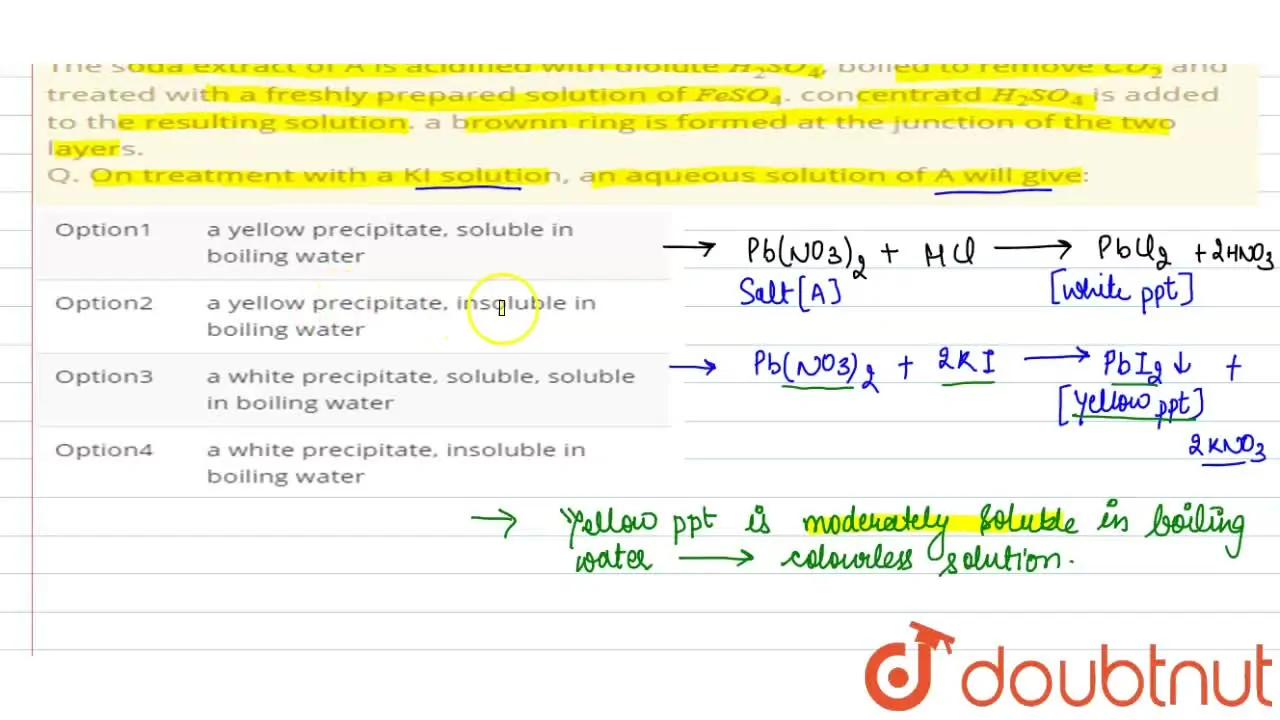 The soda extract of A is acidified with diolute H₂SO₄, boiled to remove CO₂ and
treated with a freshly prepared solution of FeSO₄. concentratd H₂SO₄ is added
to the resulting solution. a brownn ring is formed at the junction of the two
layers.
Q. On treatment with a KI solution, an aqueous solution of A will give:
Option1 a yellow precipitate, soluble in
boiling water
Option2 a yellow precipitate, insoluble in
boiling water
Option3 a white precipitate, soluble, soluble
in boiling water
Option4 a white precipitate, insoluble in
boiling water
→ Pb(NO3)₂ + HCl → PbCl₂ + 2HNO3
Salt[A] [white ppt]
→ Pb(NO3)₂ + 2KI → PbI₂↓ +
[Yellow ppt]
2KNO3
→ Yellow ppt is moderately soluble in boiling
water → colourless solution.
doubtnut